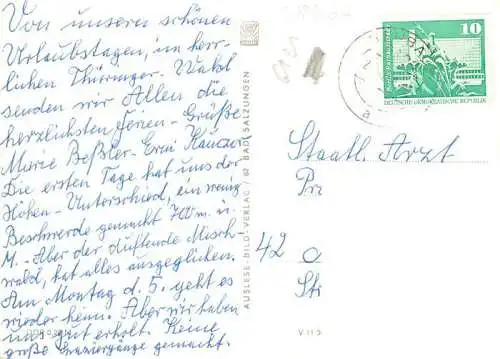 Von unseren schönen
Urlaubstagen, im herr-
lichen Thüringer-Wald
senden wir Allen die
herzlichsten Ferien-Grüße
Marie Beßler-Erni
Die ersten Tage hat uns der
Höhen-Unterschied, ein wenig
Beschwerde gemacht 700 m. ü.
M.-Aber der duftende Misch-
wald, hat alles ausgeglichen.
Am Montag d. 5. geht es
wieder heim. Aber wir haben
uns gut erholt. Keine
große gemacht.
AUSLESE-BILD-VERLAG / 62 BAD SALZUNGEN
10
DEUTSCHE DEMOKRATISCHE REPUBLIK
Staatl. Arzt
Pr
42 O
Sti
V 11 5